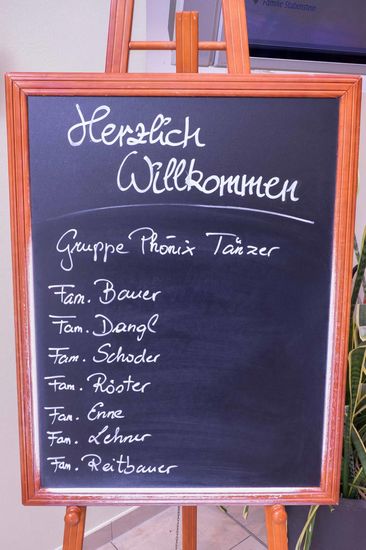 Familie Stubenstein
Herzlich
Willkommen
Gruppe Phönix Tänzer
Fam. Bauer
Fam. Dangl
Fam. Schoder
Fam. Röster
Fam. Enne
Fam. Lehner
Fam. Reitbauer